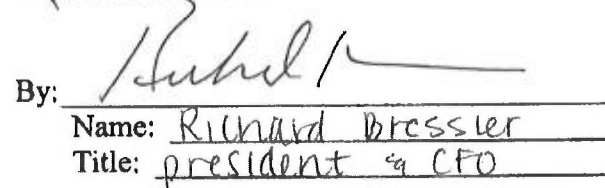 By:
Name: Richard Bressler
Title: president & CFO